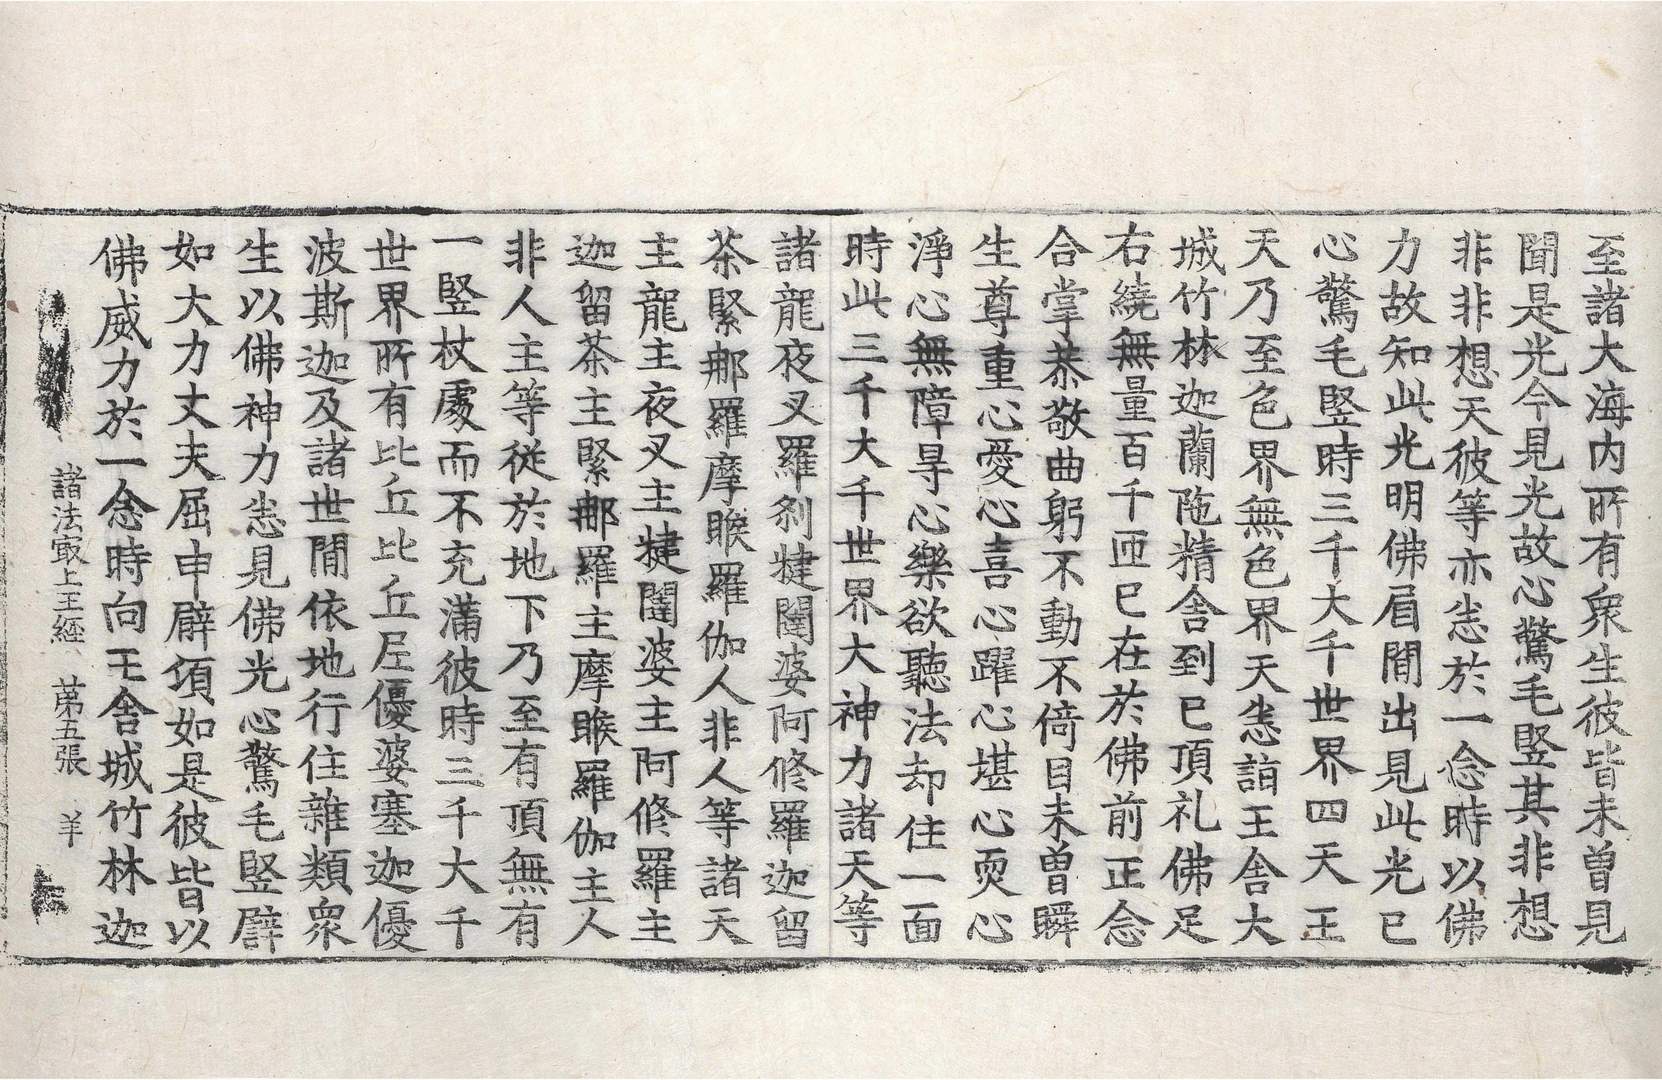 至諸大海内所有衆生彼皆未曽見
聞是光今見光故心驚毛竪其非想
非非想天彼等亦悉於一念時以佛
力故知此光明佛眉間出見此光已
心驚毛竪時三千大千世界四天王
天乃至色界無色界天悉詣王舍大
城竹林迦蘭陁精舍到已頂礼佛足
右繞無量百千匝已在於佛前正念
合掌恭敬曲躬不動不倚目未曽瞬
生尊重心愛心喜心躍心堪心耎心
淨心無障㝵心樂欲聽法却住一面
時此三千大千世界大神力諸天等
諸龍夜叉羅刹揵闥婆阿修羅迦留
茶緊那羅摩睺羅伽人非人等諸天
主龍主夜叉主揵闥婆主阿修羅主
迦留茶主緊那羅主摩睺羅伽主人
非人主等從於地下乃至有頂無有
一竪杖處而不充滿彼時三千大千
世界所有比丘比丘尼優婆塞迦優
波斯迦及諸世間依地行住雜類衆
生以佛神力悉見佛光心驚毛竪譬
如大力丈夫屈申臂頃如是彼皆以
佛威力於一念時向王舍城竹林迦
諸法㝡上王經 苐五張 羊